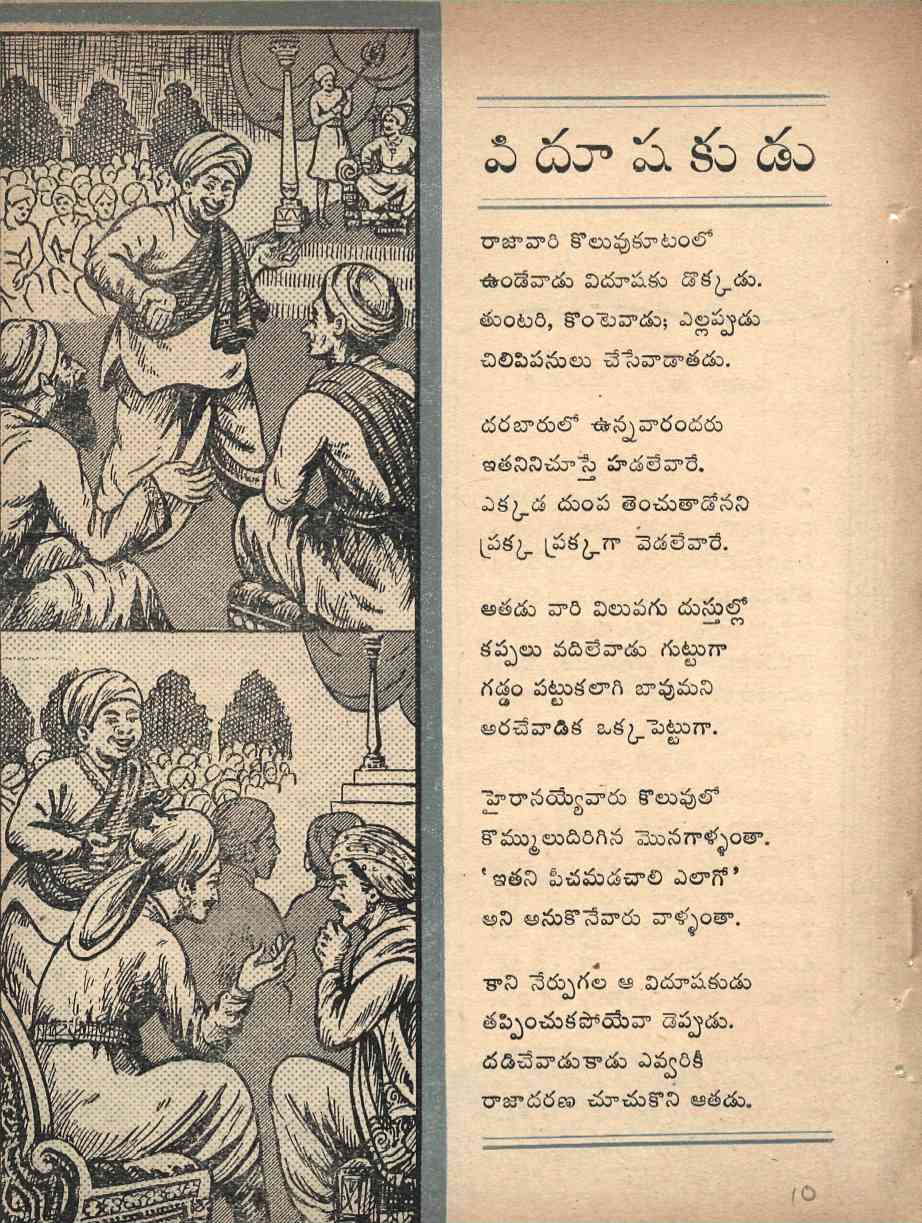 విదూషకుడు
రాజావారి కొలువుకూటంలో
ఉండేవాడు విదూషకు డొక్కడు.
తుంటరి, కొంటెవాడు; ఎల్లప్పుడు
చిలిపిపనులు చేసేవాడాతడు.
దరబారులో ఉన్నవారందరు
ఇతనినిచూస్తే హడలేవారే.
ఎక్కడ దుంప తెంచుతాడోనని
ప్రక్క ప్రక్కగా వెడలేవారే.
అతడు వారి విలువగు దుస్తుల్లో
కప్పలు వదిలేవాడు గుట్టుగా
గడ్డం పట్టుకలాగి బావుమని
అరచేవాడిక ఒక్కపెట్టుగా.
హైరానయ్యేవారు కొలువులో
కొమ్ములుదిరిగిన మొనగాళ్ళంతా.
'ఇతని పీచమడచాలి ఎలాగో'
అని అనుకొనేవారు వాళ్ళంతా.
కాని నేర్పుగల ఆ విదూషకుడు
తప్పించుకపోయేవా డెప్పుడు.
దడిచేవాడుకాడు ఎవ్వరికీ
రాజాదరణ చూచుకొని ఆతడు.
10